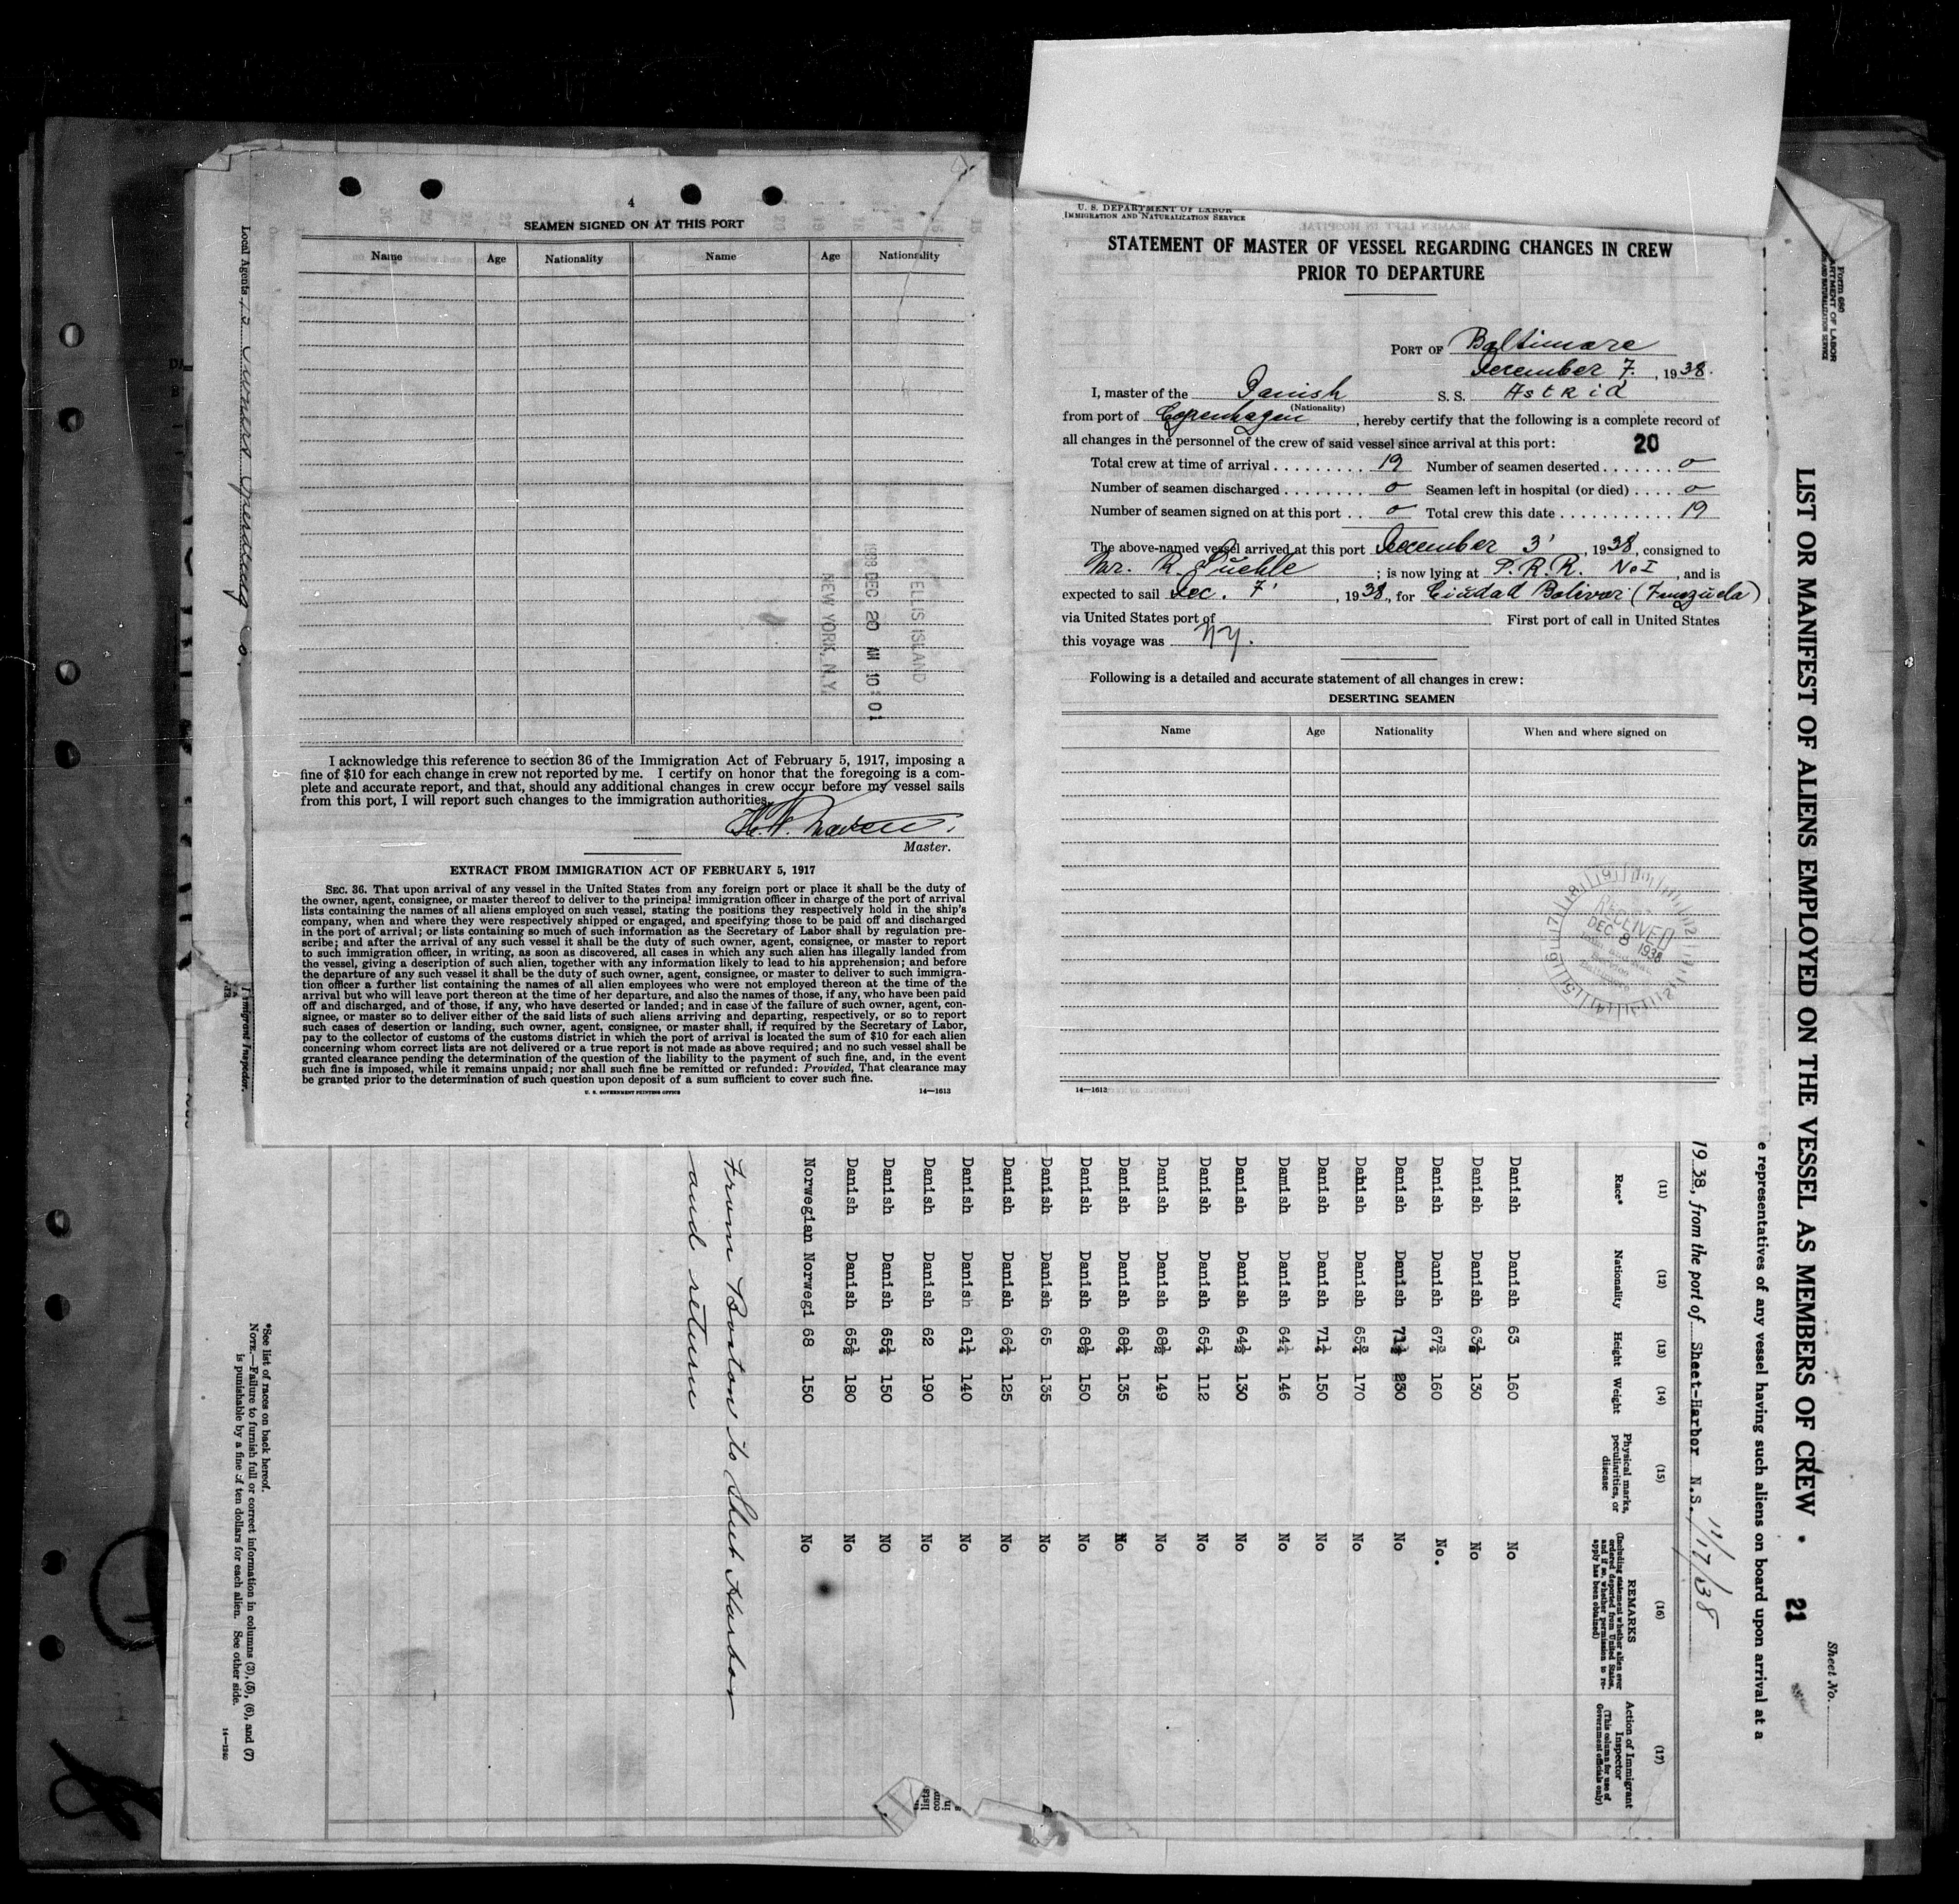 4
SEAMEN SIGNED ON AT THIS PORT
Name Age Nationality Name Age Nationality
ELLIS ISLAND
1938 DEC 20 AM 10:01
NEW YORK, N.Y.
I acknowledge this reference to section 36 of the Immigration Act of February 5, 1917, imposing a
fine of $10 for each change in crew not reported by me. I certify on honor that the foregoing is a com-
plete and accurate report, and that, should any additional changes in crew occur before my vessel sails
from this port, I will report such changes to the immigration authorities.
Master.
EXTRACT FROM IMMIGRATION ACT OF FEBRUARY 5, 1917
SEC. 36. That upon arrival of any vessel in the United States from any foreign port or place it shall be the duty of
the owner, agent, consignee, or master thereof to deliver to the principal immigration officer in charge of the port of arrival
lists containing the names of all aliens employed on such vessel, stating the positions they respectively hold in the ship's
company, when and where they were respectively shipped or engaged, and specifying those to be paid off and discharged
in the port of arrival; or lists containing so much of such information as the Secretary of Labor shall by regulation pre-
scribe; and after the arrival of any such vessel it shall be the duty of such owner, agent, consignee, or master to report
to such immigration officer, in writing, as soon as discovered, all cases in which any such alien has illegally landed from
the vessel, giving a description of such alien, together with any information likely to lead to his apprehension; and before
the departure of any such vessel it shall be the duty of such owner, agent, consignee, or master to deliver to such immigra-
tion officer a further list containing the names of all alien employees who were not employed thereon at the time of the
arrival but who will leave port thereon at the time of her departure, and also the names of those, if any, who have been paid
off and discharged, and of those, if any, who have deserted or landed; and in case of the failure of such owner, agent, con-
signee, or master so to deliver either of the said lists of such aliens arriving and departing, respectively, or so to report
such cases of desertion or landing, such owner, agent, consignee, or master shall, if required by the Secretary of Labor,
pay to the collector of customs of the customs district in which the port of arrival is located the sum of $10 for each alien
concerning whom correct lists are not delivered or a true report is not made as above required; and no such vessel shall be
granted clearance pending the determination of the question of the liability to the payment of such fine, and, in the event
such fine is imposed, while it remains unpaid; nor shall such fine be remitted or refunded: Provided, That clearance may
be granted prior to the determination of such question upon deposit of a sum sufficient to cover such fine.
U. S. GOVERNMENT PRINTING OFFICE 14—1613
U. S. DEPARTMENT OF LABOR
IMMIGRATION AND NATURALIZATION SERVICE
STATEMENT OF MASTER OF VESSEL REGARDING CHANGES IN CREW
PRIOR TO DEPARTURE
PORT OF Baltimore
December 7., 1938.
I, master of the Danish S. S. Astrid
(Nationality)
from port of Copenhagen, hereby certify that the following is a complete record of
all changes in the personnel of the crew of said vessel since arrival at this port: 20
Total crew at time of arrival 19 Number of seamen deserted 0
Number of seamen discharged 0 Seamen left in hospital (or died) 0
Number of seamen signed on at this port 0 Total crew this date 19
The above-named vessel arrived at this port December 3', 1938, consigned to
Mr. R. ; is now lying at P.R.R. No I, and is
expected to sail Dec. 7', 1938, for Ciudad Bolivar (Venezuela)
via United States port of First port of call in United States
this voyage was NY.
Following is a detailed and accurate statement of all changes in crew:
DESERTING SEAMEN
Name Age Nationality When and where signed on
RECEIVED
DEC 8 1938
14—1613
Local Agents
Immigrant Inspector.
Form 680
LIST OR MANIFEST OF ALIENS EMPLOYED ON THE VESSEL AS MEMBERS OF CREW
21
Sheet No.
e representatives of any vessel having such aliens on board upon arrival at a
1938, from the port of Sheet-Harbor N.S. 11/17/38
(11) (12) (13) (14) (15) (16) (17)
Race* Nationality Height Weight Physical marks, peculiarities, or disease REMARKS (Including statement whether alien ever ordered deported from United States, and if so, whether permission to re-apply has been obtained) Action of Immigrant Inspector (This column for use of Government officials only)
Danish Danish 63 160 No
Danish Danish 63½ 130 No
Danish Danish 67¾ 160 No.
Danish Danish 71½ 230 No
Danish Danish 65¾ 170 No
Danish Danish 71¼ 150 No
Danish Danish 64¼ 146 No
Danish Danish 64½ 130 No
Danish Danish 65¼ 112 No
Danish Danish 68½ 149 No
Danish Danish 68¼ 135 No
Danish Danish 68½ 150 No
Danish Danish 65 135 No
Danish Danish 66¼ 125 No
Danish Danish 61¼ 140 No
Danish Danish 62 190 No
Danish Danish 65¼ 150 No
Danish Danish 65½ 180 No
Norwegian Norwegi 68 150 No
From Boston to Sheet Harbor
and return
*See list of races on back hereof.
NOTE.—Failure to furnish full or correct information in columns (3), (5), (6), and (7)
is punishable by a fine of ten dollars for each alien. See other side.
14—1240